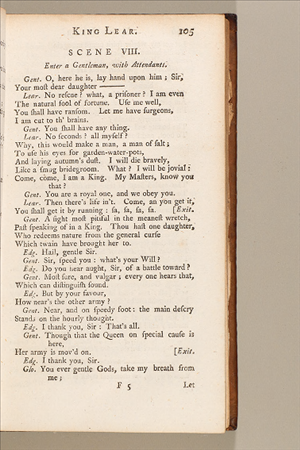 KING LEAR. 105
SCENE VIII.
Enter a Gentleman, with Attendants.
Gent. O, here he is, lay hand upon him; Sir,
Your moſt dear daughter ———
Lear. No reſcue? what, a priſoner? I am even
The natural fool of fortune. Uſe me well,
You ſhall have ranſom. Let me have ſurgeons,
I am cut to th' brains.
Gent. You ſhall have any thing.
Lear. No ſeconds? all myſelf?
Why, this would make a man, a man of ſalt;
To uſe his eyes for garden-water-pots,
And laying autumn's duſt. I will die bravely,
Like a ſmug bridegroom. What? I will be jovial:
Come, come, I am a King. My Maſters, know you
that?
Gent. You are a royal one, and we obey you.
Lear. Then there's life in't. Come, an you get it,
You ſhall get it by running: ſa, ſa, ſa, ſa. [Exit.
Gent. A ſight moſt pitiful in the meaneſt wretch,
Paſt ſpeaking of in a King. Thou haſt one daughter,
Who redeems nature from the general curſe
Which twain have brought her to.
Edg. Hail, gentle Sir.
Gent. Sir, ſpeed you: what's your Will?
Edg. Do you hear aught, Sir, of a battle toward?
Gent. Moſt ſure, and vulgar; every one hears that,
Which can diſtinguiſh ſound.
Edg. But by your favour,
How near's the other army?
Gent. Near, and on ſpeedy foot: the main deſcry
Stands on the hourly thought.
Edg. I thank you, Sir: That's all.
Gent. Though that the Queen on ſpecial cauſe is
here,
Her army is mov'd on. [Exit.
Edg. I thank you, Sir.
Glo. You ever gentle Gods, take my breath from
me;
F 5 Let